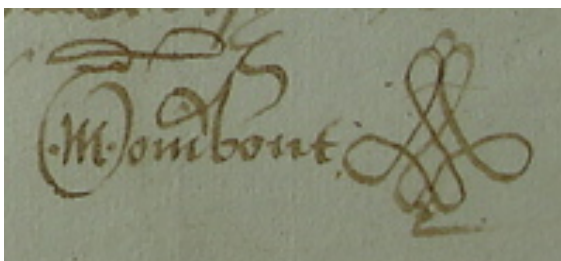 .M. ombont